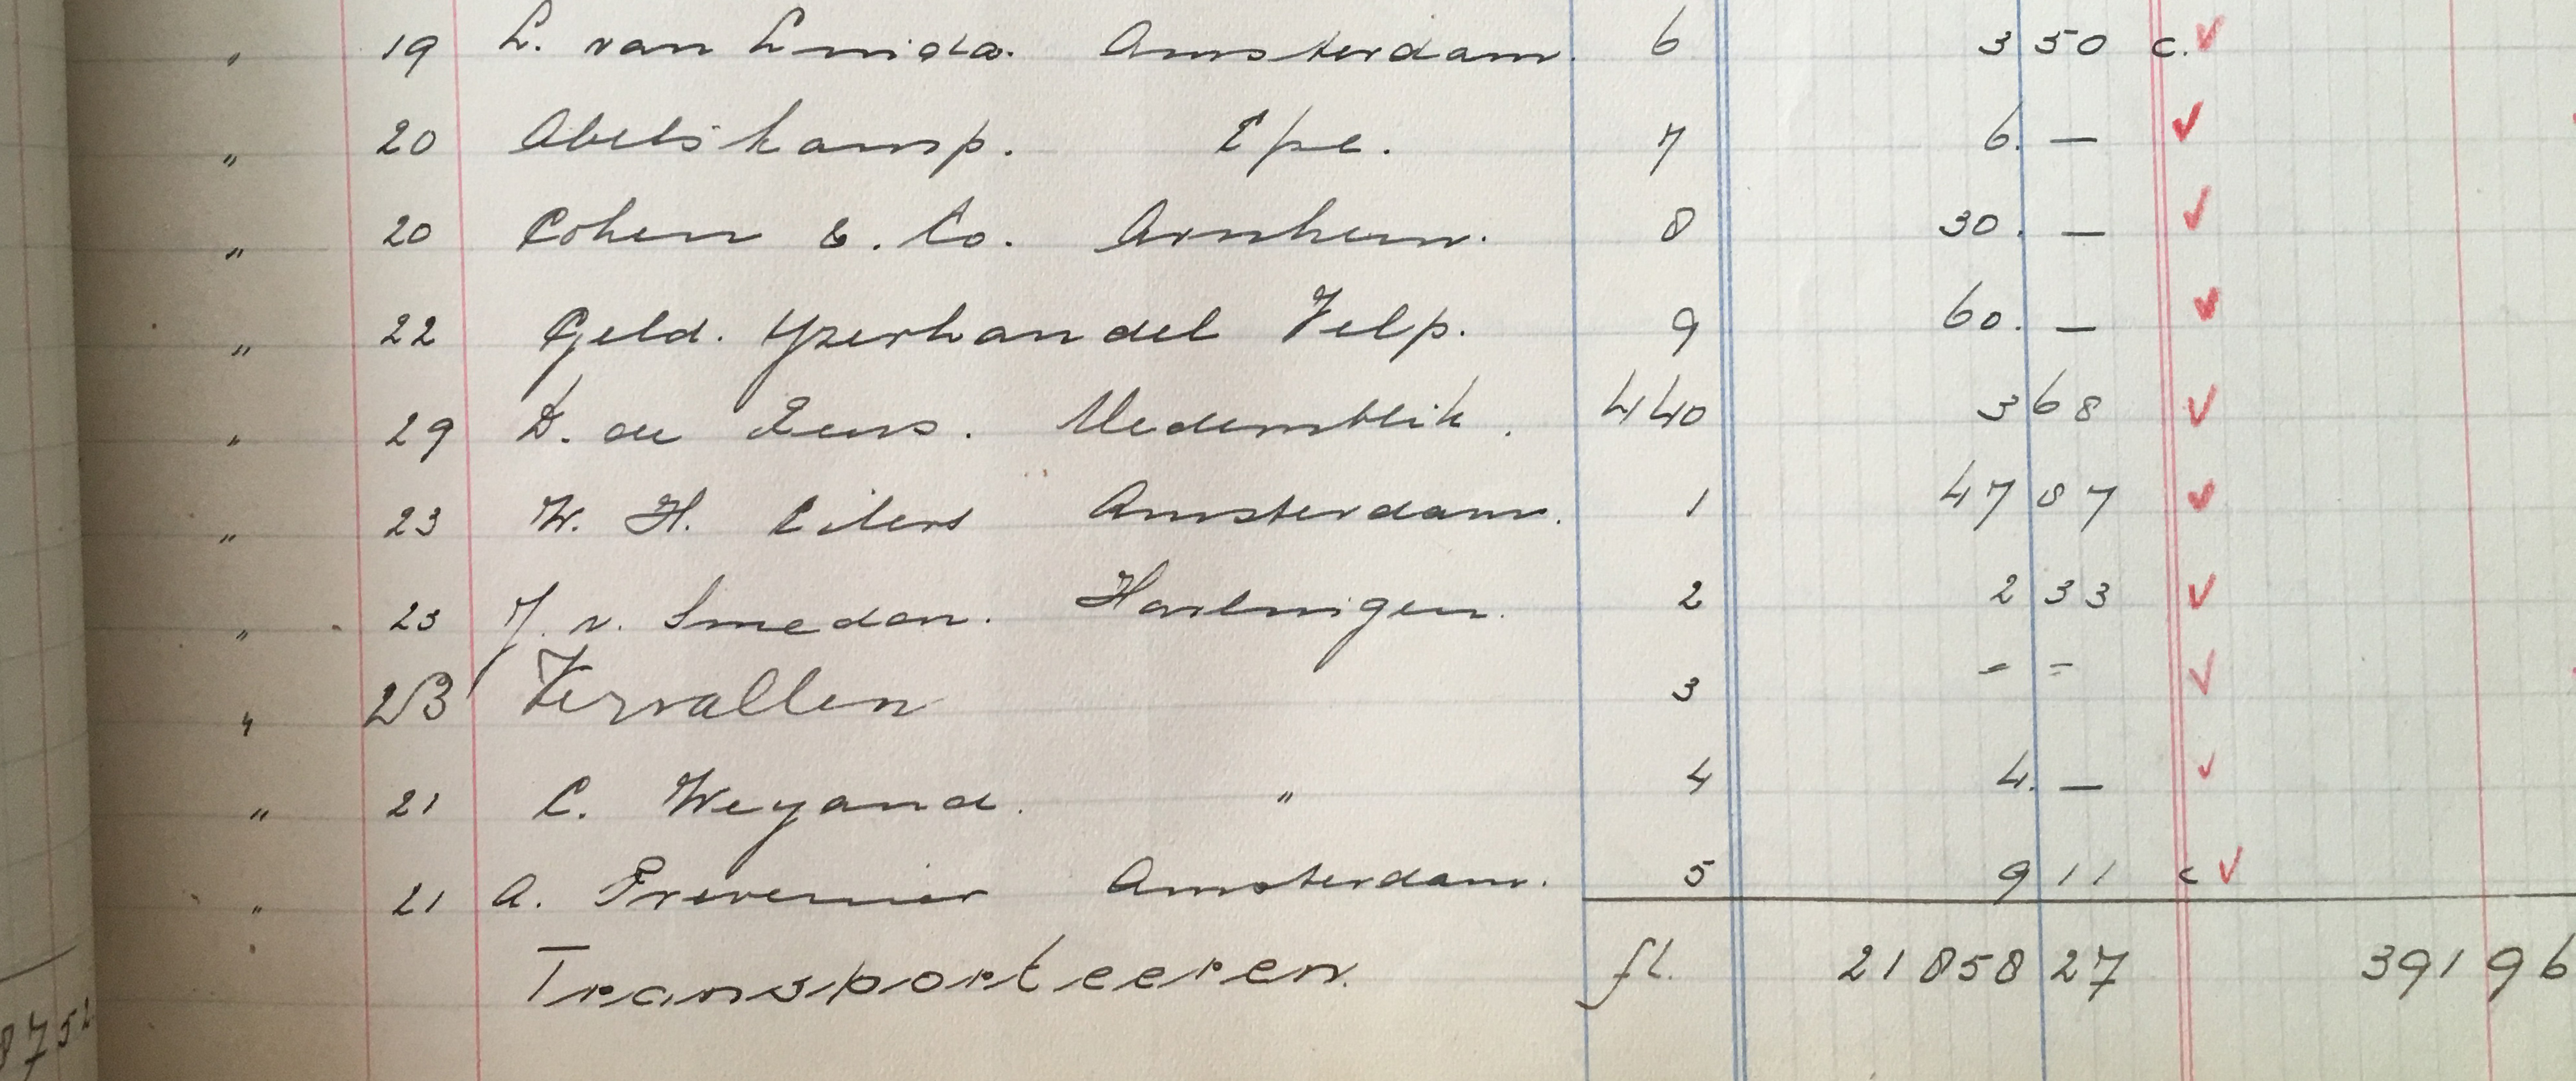 " 19 L. van Amsterdam. 6 3 50 c. ✓
" 20 Abelskamp. Epe. 7 6. — ✓
" 20 Cohen & Co. Arnhem. 8 30. — ✓
" 22 Geld. Yzerhandel Velp. 9 60. — ✓
" 29 D. de Medemblik. 440 3 68 ✓
" 23 W. H. Eilers Amsterdam. 1 47 87 ✓
" 23 J. v. Smeden. Harlingen. 2 2 33 ✓
" 23 Vervallen 3 - = ✓
" 21 C. Weyand. " 4 4. — ✓
" 21 A. Prevenier Amsterdam. 5 9 11 c ✓
Transporteeren. fl. 21858 27 391 96
8752